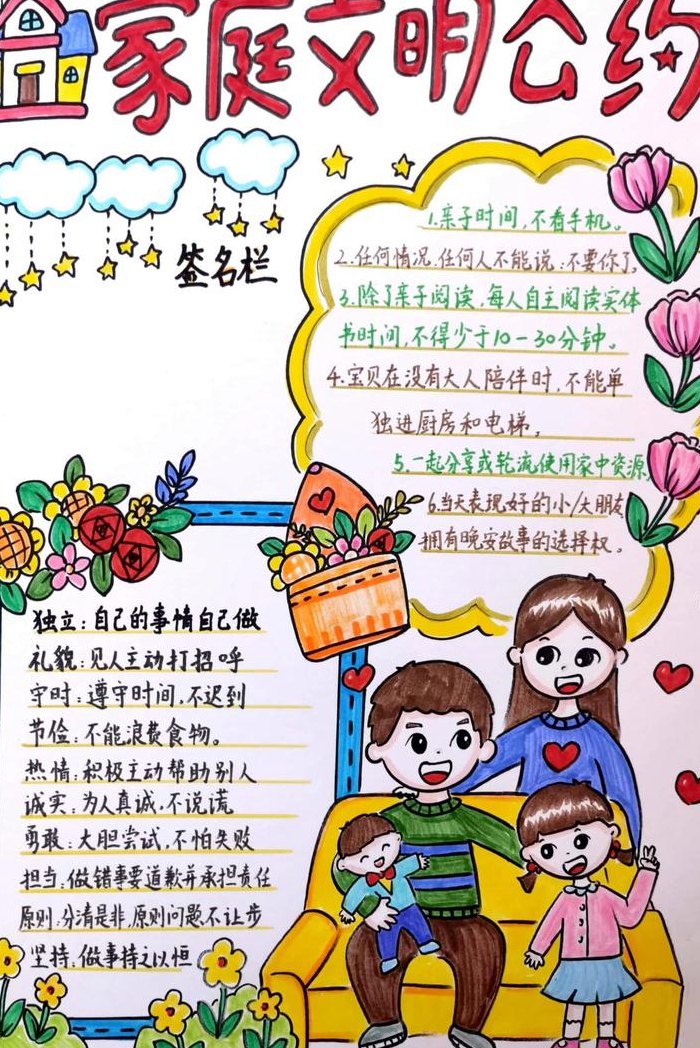 家庭文明公约
签名栏
1.亲子时间,不看手机。
2.任何情况,任何人不能说:不要你了。
3.除了亲子阅读,每人自主阅读实体
书时间,不得少于10-30分钟。
4.宝贝在没有大人陪伴时,不能单
独进厨房和电梯。
5.一起分享或轮流使用家中资源
6.当天表现好的小/大朋友
拥有晚安故事的选择权。
独立:自己的事情自己做
礼貌:见人主动打招呼
守时:遵守时间,不迟到
节俭:不能浪费食物。
热情:积极主动帮助别人
诚实:为人真诚,不说谎
勇敢:大胆尝试,不怕失败
担当:做错事要道歉并承担责任
原则:分清是非,原则问题不让步
坚持:做事持之以恒